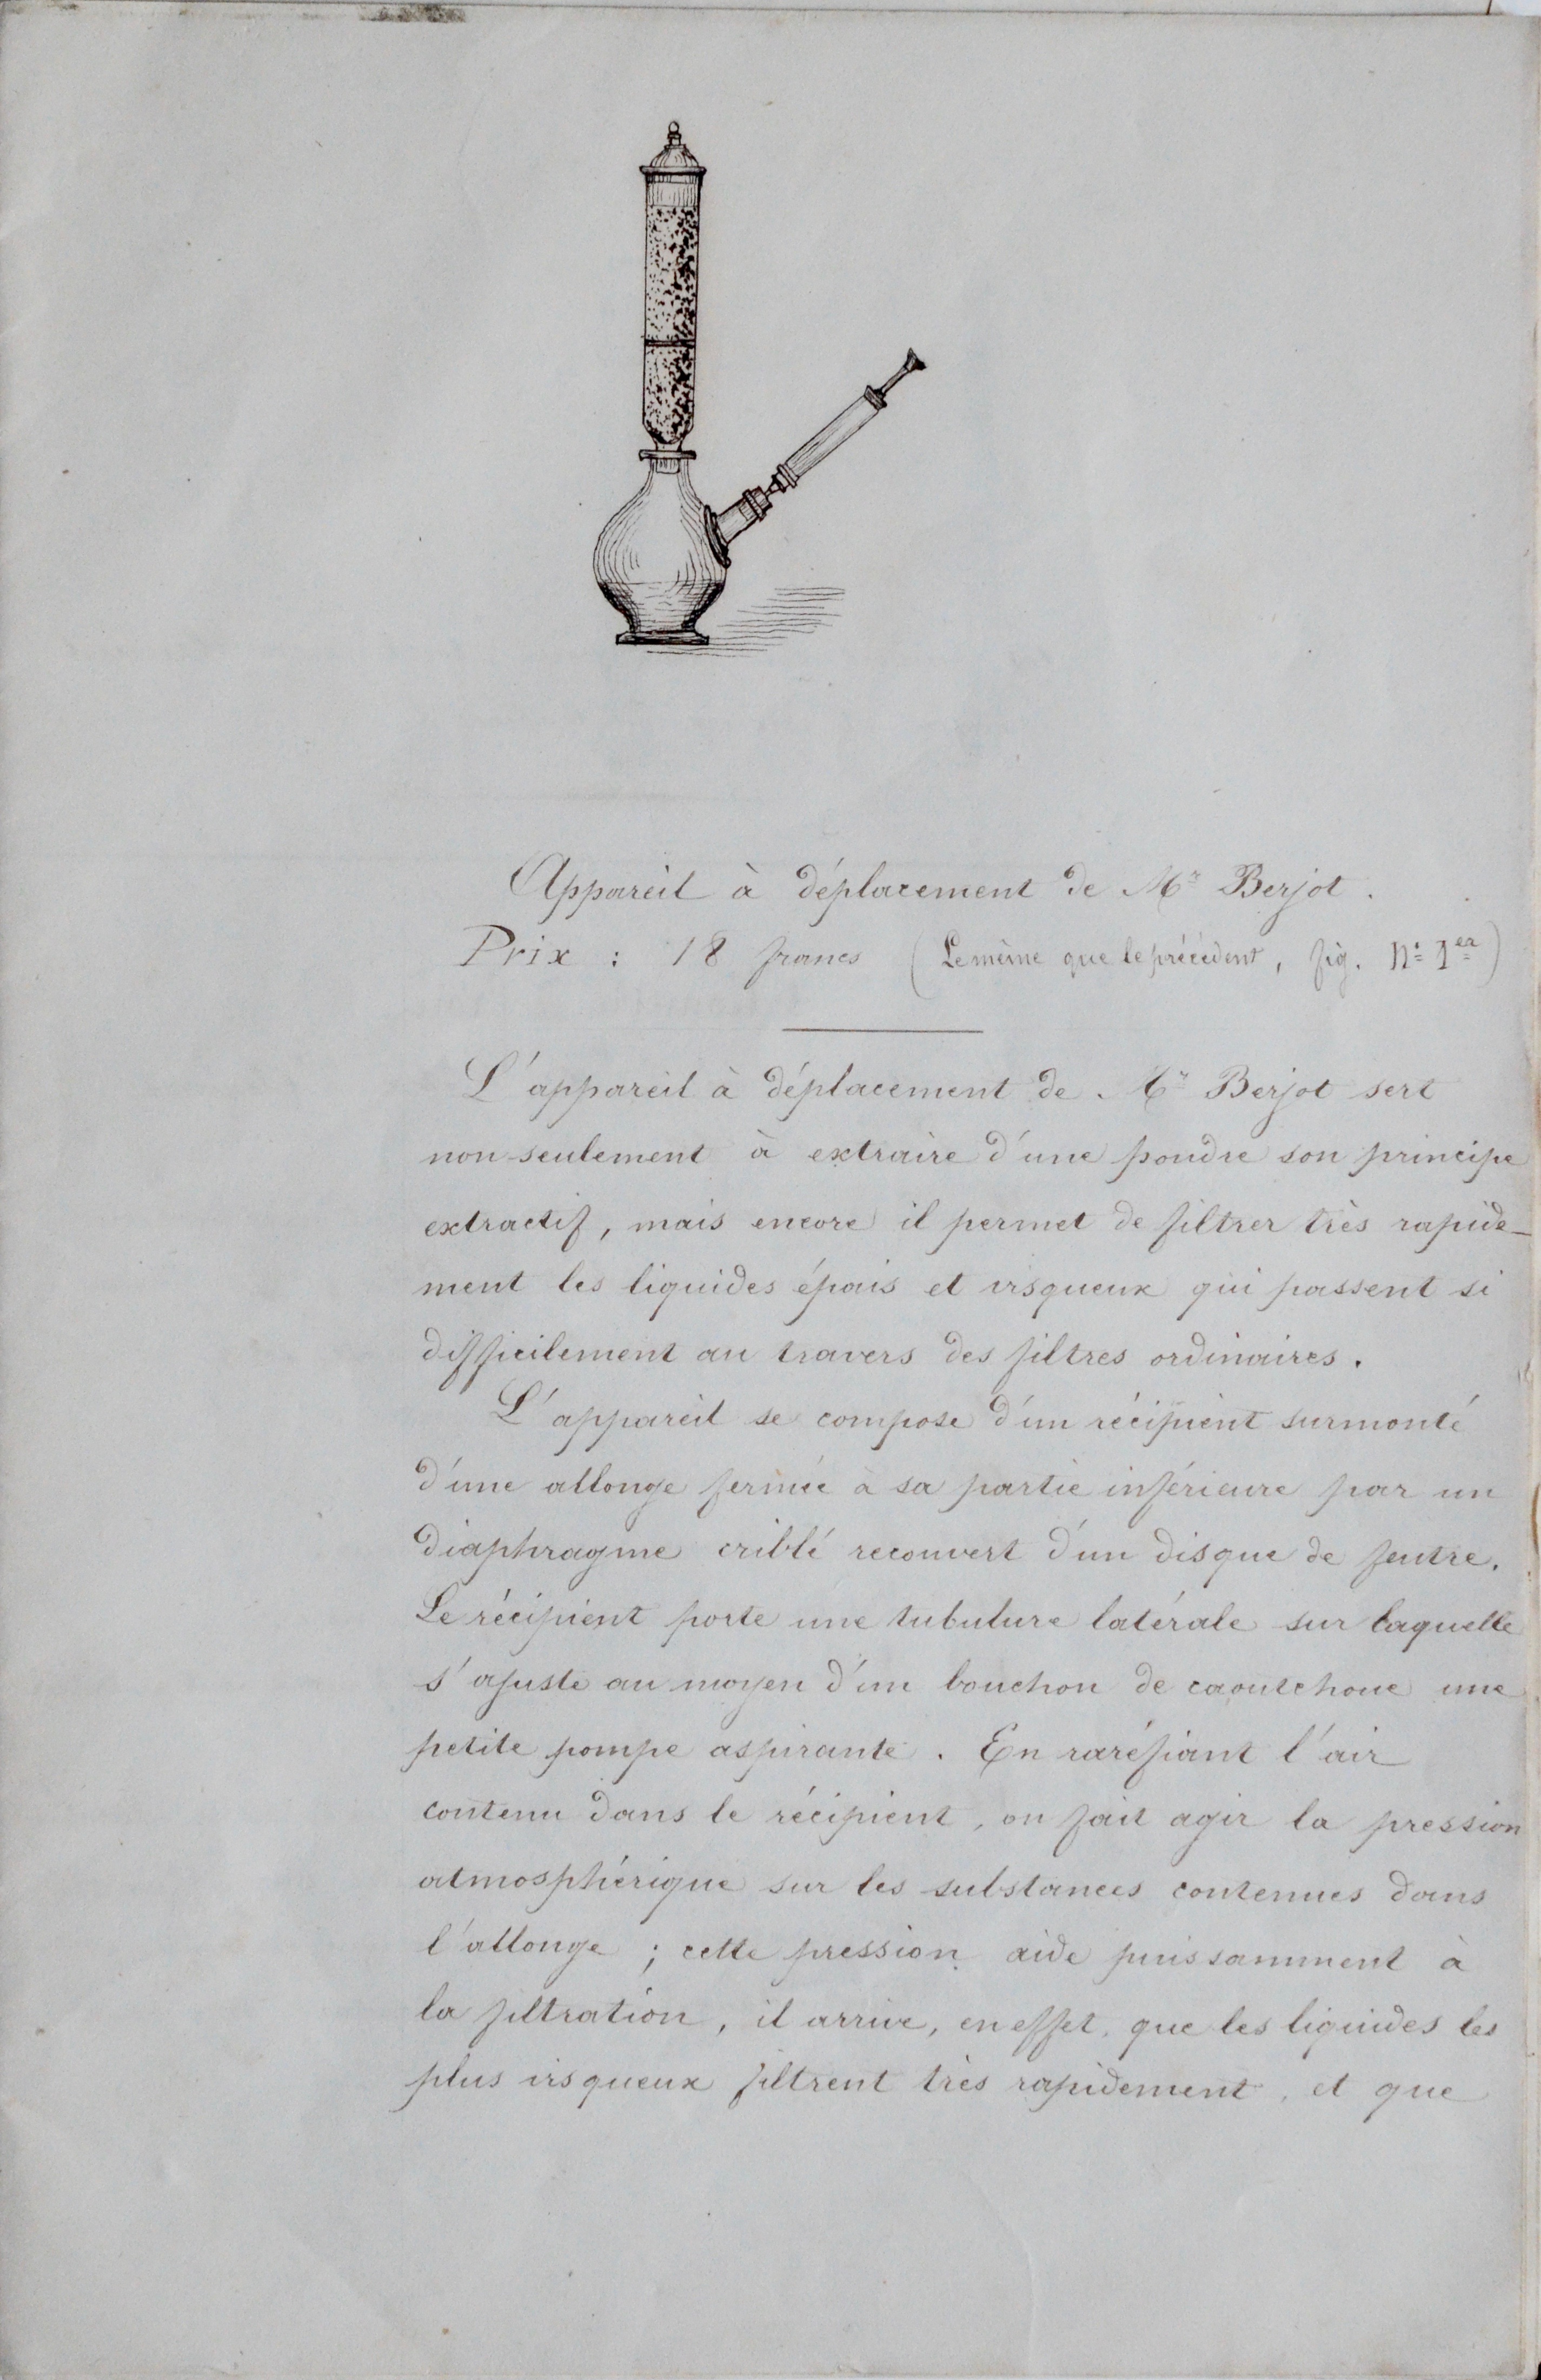 Appareil à déplacement de Mr Berjot.
Prix : 18 francs (Le même que le précédent, fig. No 1er)
L'appareil à déplacement de Mr Berjot sert
non-seulement à extraire d'une poudre son principe
extractif, mais encore il permet de filtrer très rapide-
ment les liquides épais et visqueux qui passent si
difficilement au travers des filtres ordinaires.
L'appareil se compose d'un récipient surmonté
d'une allonge fermée à sa partie inférieure par un
diaphragme criblé recouvert d'un disque de feutre.
Le récipient porte une tubulure latérale sur laquelle
s'ajuste au moyen d'un bouchon de caoutchouc une
petite pompe aspirante. En raréfiant l'air
contenu dans le récipient, on fait agir la pression
atmosphérique sur les substances contenues dans
l'allonge ; cette pression aide puissamment à
la filtration, il arrive, en effet, que les liquides les
plus visqueux filtrent très rapidement, et que